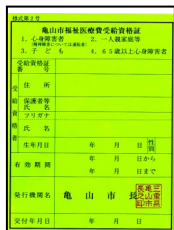 様式第2号
亀山市福祉医療費受給資格証
1．心身障害者　2．一人親家庭等
(精神障害については通院者)
3．子ども　4．65歳以上心身障害者
受給資格証
番号
受給資格者
住所
保護者等
氏名
フリガナ
氏名
生年月日　年　月　日　性別
有効期間
年　月　日から
年　月　日まで
発行機関名　亀山市長
交付年月日　年　月　日